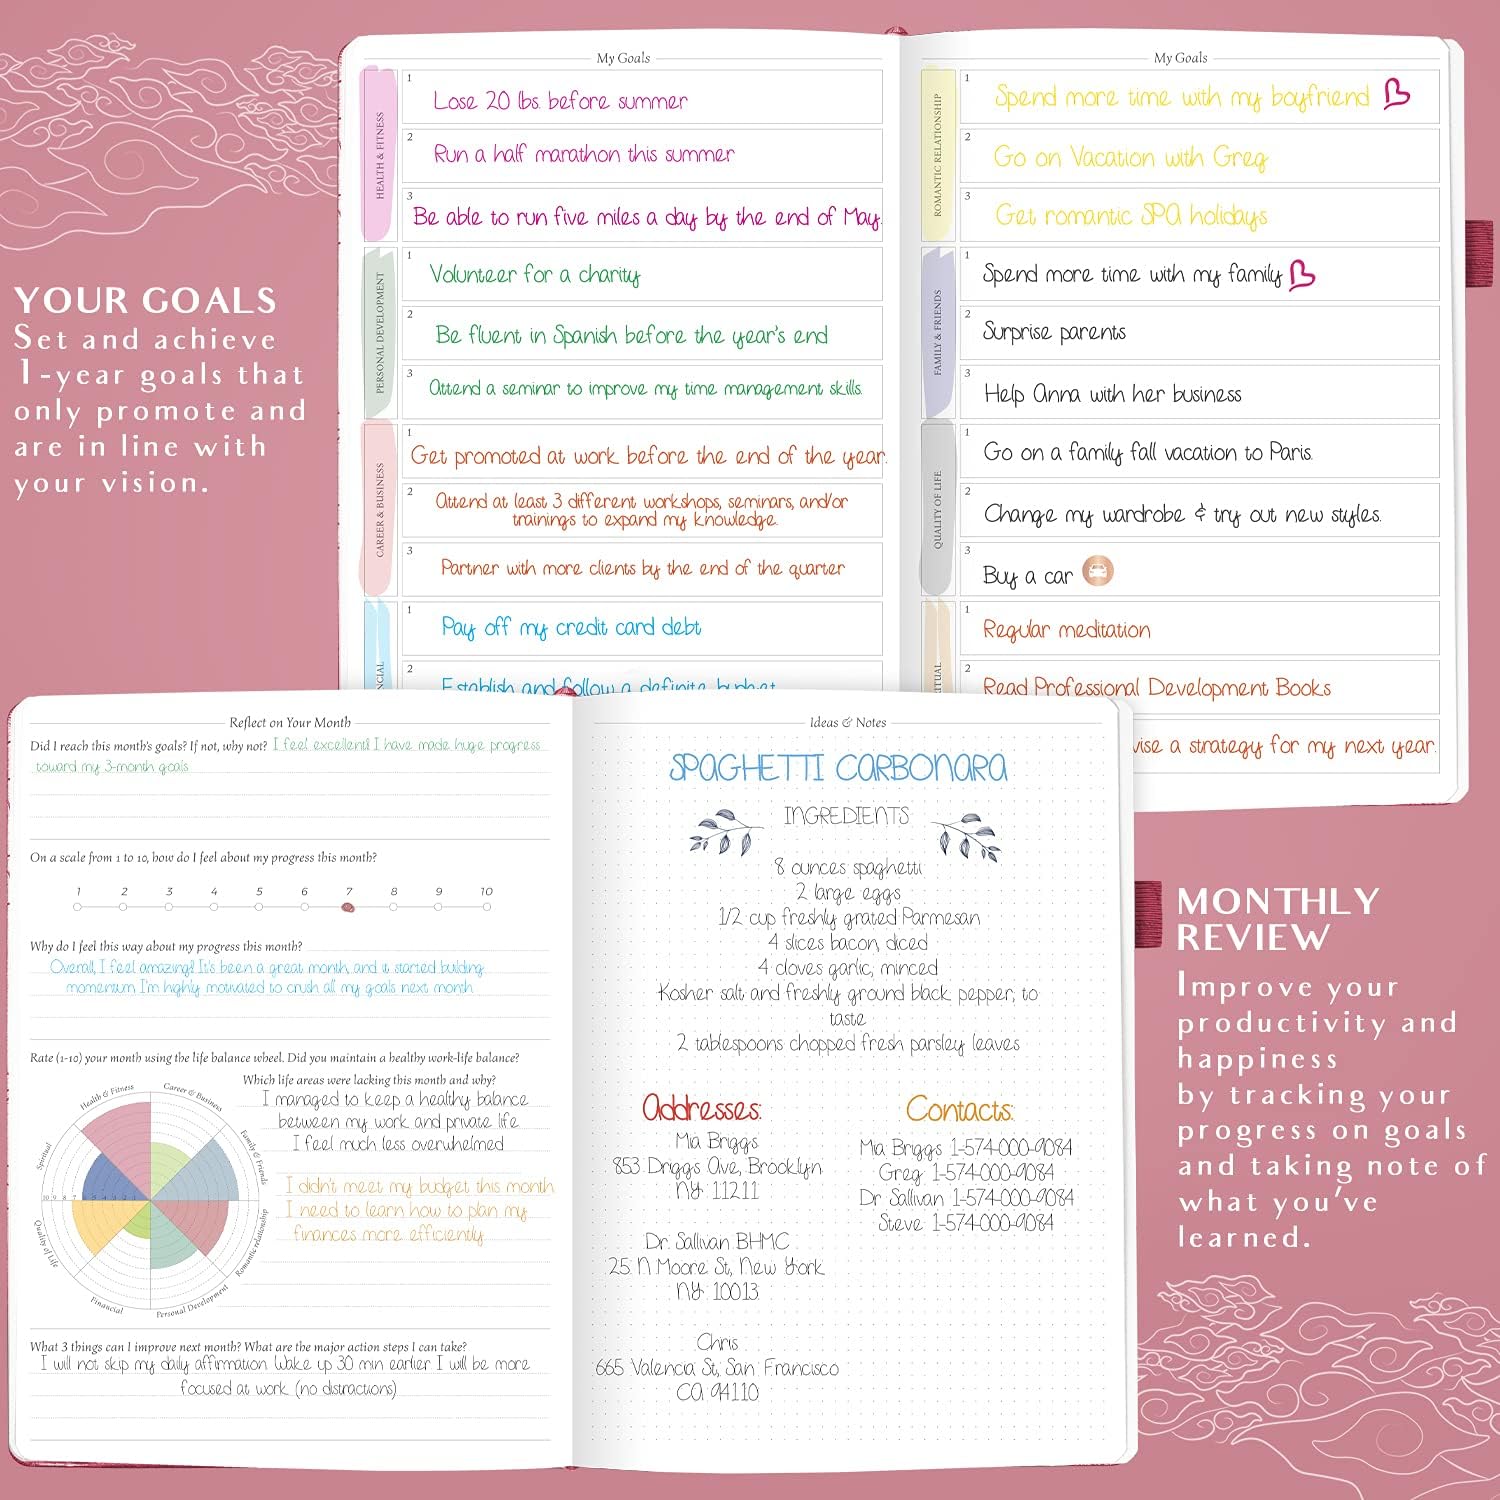 YOUR GOALS
Set and achieve
1-year goals that
only promote and
are in line with
your vision.
My Goals
HEALTH & FITNESS
1
Lose 20 lbs. before summer
2
Run a half marathon this summer
3
Be able to run five miles a day by the end of May.
PERSONAL DEVELOPMENT
1
Volunteer for a charity
2
Be fluent in Spanish before the year's end
3
Attend a seminar to improve my time management skills.
CAREER & BUSINESS
1
Get promoted at work before the end of the year.
2
Attend at least 3 different workshops, seminars, and/or
trainings to expand my knowledge.
3
Partner with more clients by the end of the quarter
1
Pay off my credit card debt
2
Establish and follow a definite budget
My Goals
ROMANTIC RELATIONSHIP
1
Spend more time with my boyfriend
2
Go on Vacation with Greg
3
Get romantic SPA holidays
FAMILY & FRIENDS
1
Spend more time with my family
2
Surprise parents
3
Help Anna with her business
QUALITY OF LIFE
1
Go on a family fall vacation to Paris.
2
Change my wardrobe & try out new styles.
3
Buy a car
1
Regular meditation
2
Read Professional Development Books
a strategy for my next year.
Reflect on Your Month
Did I reach this month's goals? If not, why not? I feel excellent! I have made huge progress
toward my 3-month goals
On a scale from 1 to 10, how do I feel about my progress this month?
1 2 3 4 5 6 7 8 9 10
Why do I feel this way about my progress this month?
Overall, I feel amazing! It's been a great month, and it started building
momentum. I'm highly motivated to crush all my goals next month
Rate (1-10) your month using the life balance wheel. Did you maintain a healthy work-life balance?
Health & Fitness
Career & Business
Family & Friends
Romantic relationship
Personal Development
Financial
Quality of Life
Spiritual
10 9 8 7 6 5 4 3 2 1
Which life areas were lacking this month and why?
I managed to keep a healthy balance
between my work and private life
I feel much less overwhelmed
I didn't meet my budget this month
I need to learn how to plan my
finances more efficiently
What 3 things can I improve next month? What are the major action steps I can take?
I will not skip my daily affirmation. Wake up 30 min earlier I will be more
focused at work (no distractions)
Ideas & Notes
SPAGHETTI CARBONARA
INGREDIENTS
8 ounces spaghetti
2 large eggs
1/2 cup freshly grated Parmesan
4 slices bacon, diced
4 cloves garlic, minced
Kosher salt and freshly ground black pepper, to
taste
2 tablespoons chopped fresh parsley leaves
Addresses:
Mia Briggs
853 Driggs Ave, Brooklyn
NY 11211
Dr. Sallivan BHMC
25 N Moore St, New York
NY 10013
Chris
665 Valencia St, San Francisco
CA 94110
Contacts:
Mia Briggs 1-574-000-9084
Greg 1-574-000-9084
Dr Sallivan 1-574-000-9084
Steve 1-574-000-9084
MONTHLY
REVIEW
Improve your
productivity and
happiness
by tracking your
progress on goals
and taking note of
what you've
learned.